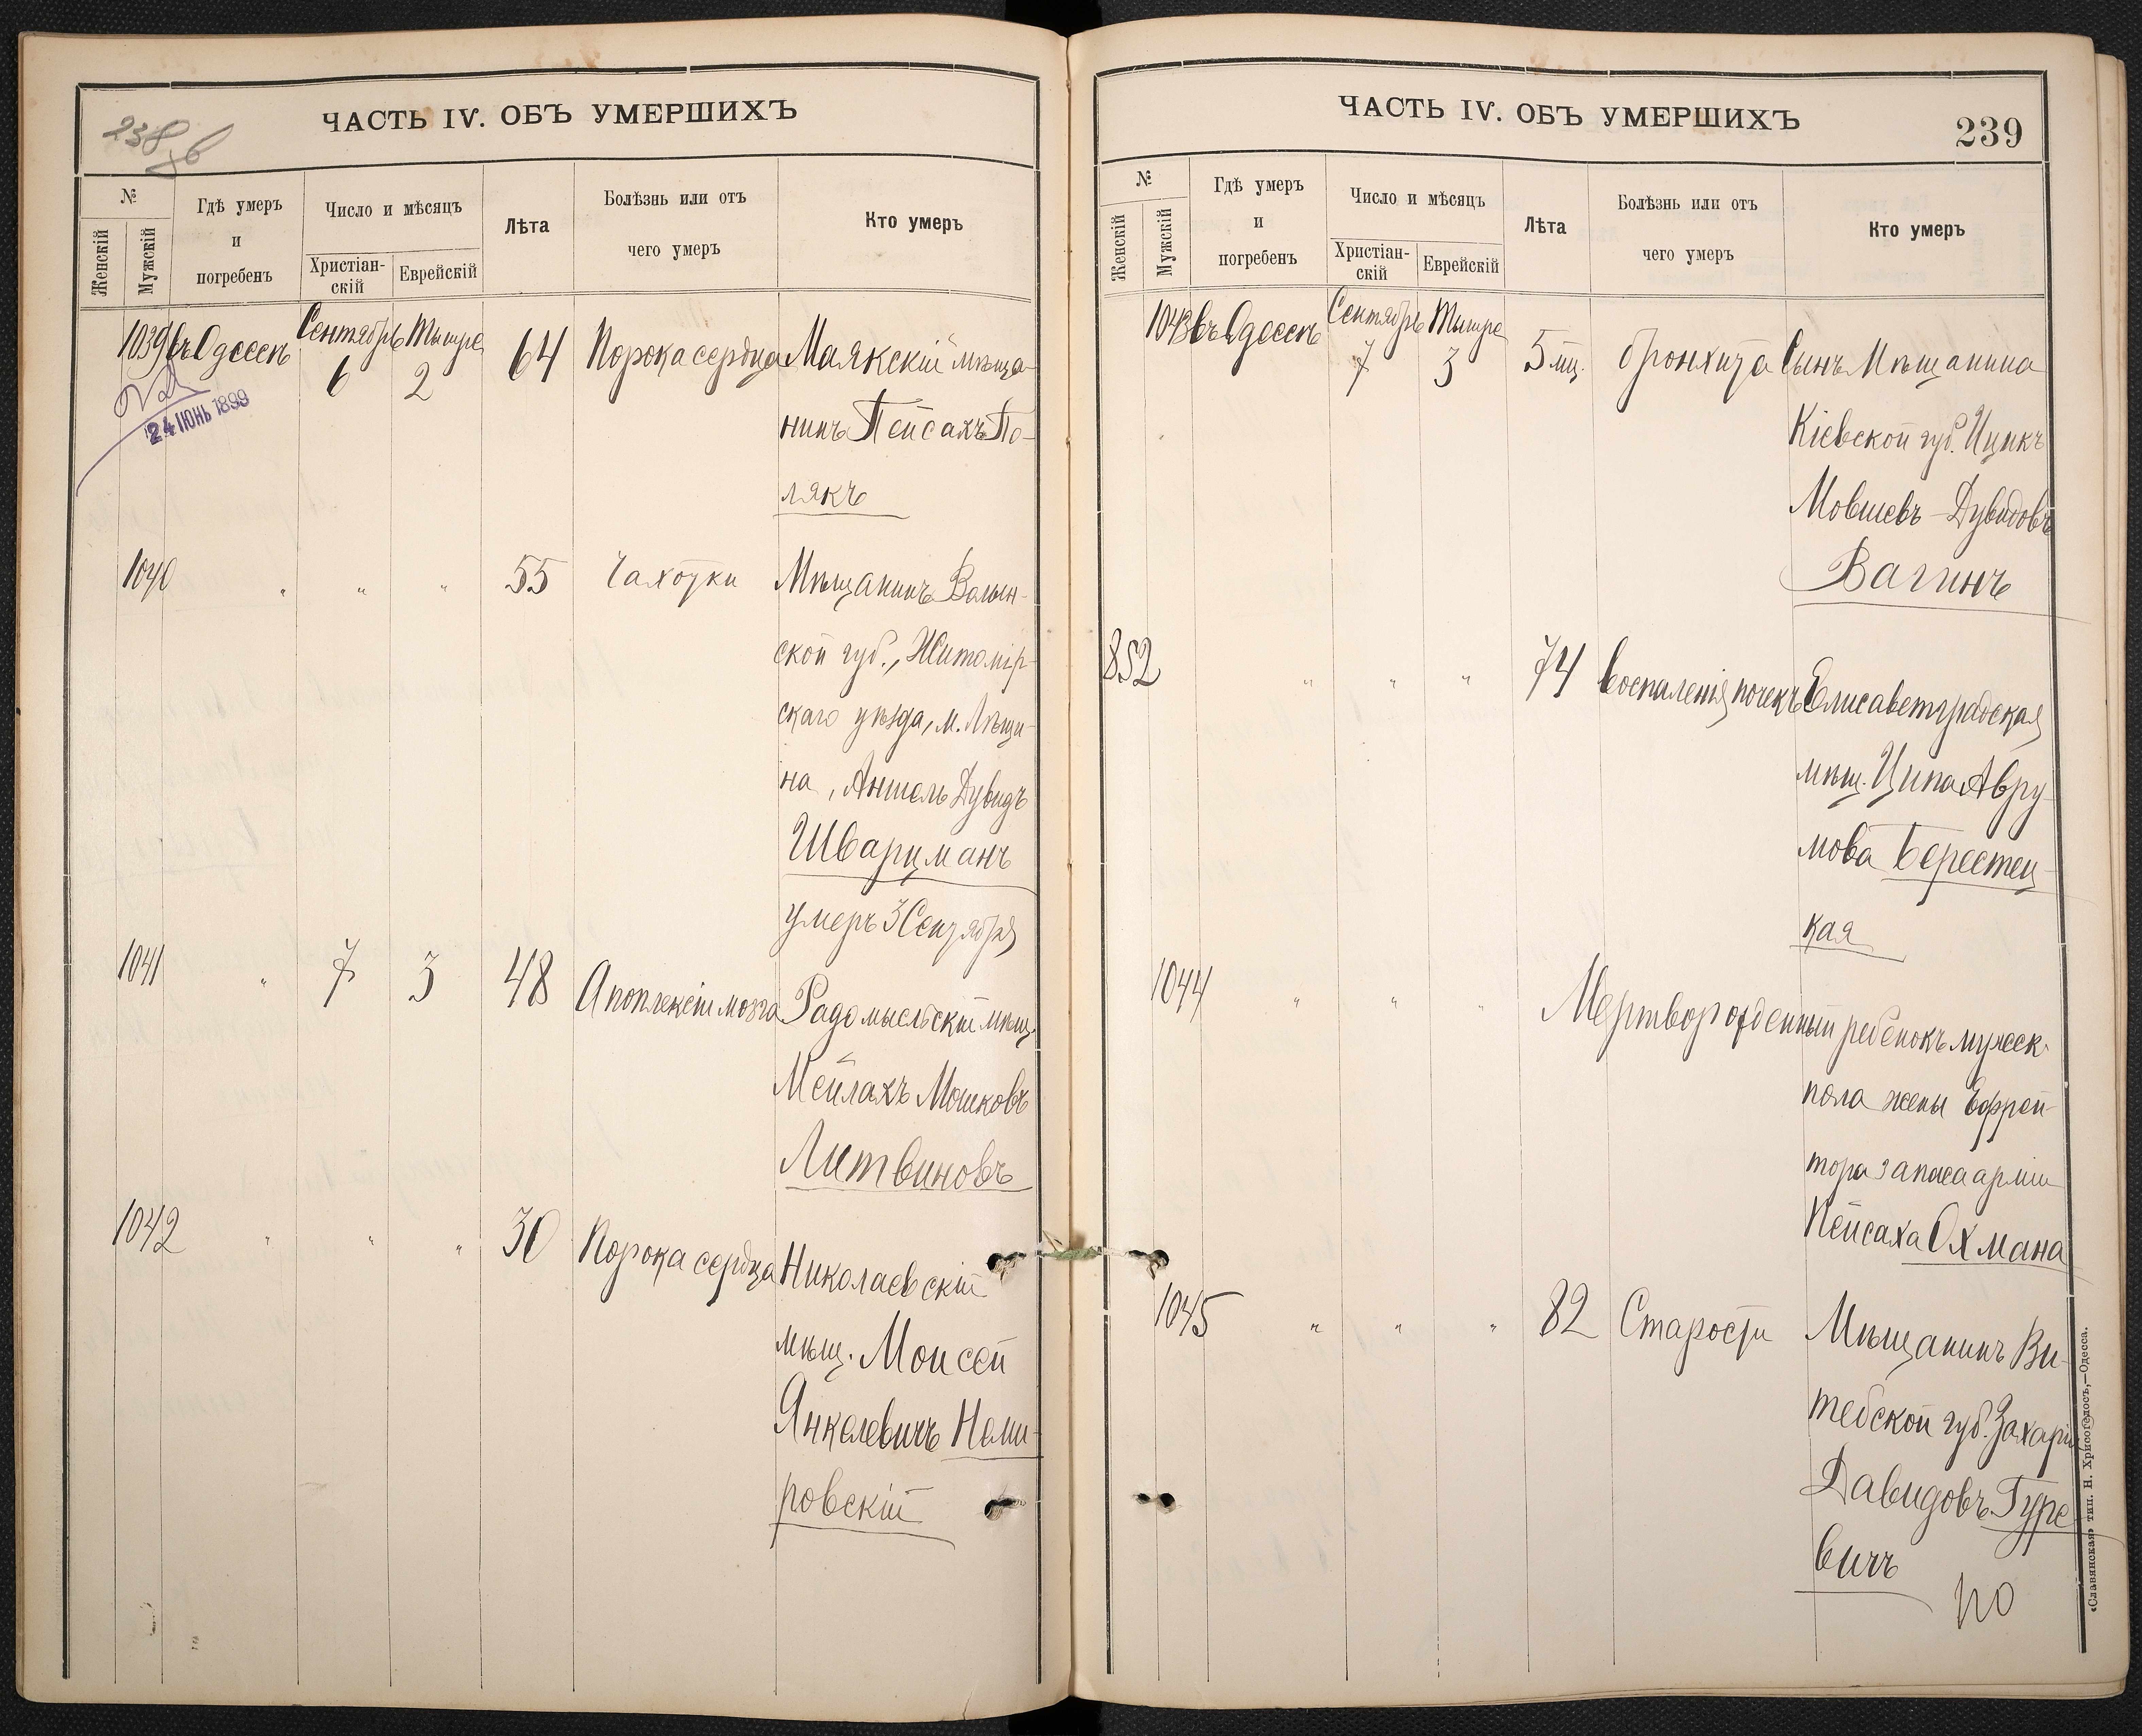 238 об
ЧАСТЬ IV. ОБЪ УМЕРШИХЪ
№
Женскій
Мужскій
Гдѣ умеръ
и
погребенъ
Число и мѣсяцъ
Христіан-
скій
Еврейскій
Лѣта
Болѣзнь или отъ
чего умеръ
Кто умеръ
1039 въ Одессѣ Сентябрь 6 Тишре 2 64 Порока сердца Маякскій мѣща-
нинъ Пейсахъ По-
лякъ
24 ІЮНЬ 1899
1040 " " " 55 Чахотки Мѣщанинъ Волын-
ской губ., Житомір-
скаго уѣзда, м. Лѣщи-
на, Аншель Дувидъ
Шварцманъ
умеръ 3 Сентября
1041 " 7 3 48 Апоплексіи мозга Радомысльскій мѣщ.
Мейлахъ Мошковъ
Литвиновъ
1042 " " " 30 Порока сердца Николаевскій
мѣщ. Моисей
Янкелевичъ Неми-
ровскій
ЧАСТЬ IV. ОБЪ УМЕРШИХЪ
239
№
Женскій
Мужскій
Гдѣ умеръ
и
погребенъ
Число и мѣсяцъ
Христіан-
скій
Еврейскій
Лѣта
Болѣзнь или отъ
чего умеръ
Кто умеръ
1043 въ Одессѣ Сентябрь 7 Тишре 3 5 мц. бронхита Сынъ Мѣщанина
Кіевской губ. Ицикъ
Мовшевъ-Дувидовъ
Вагинъ
852 " " " 74 воспаленія почекъ Елисаветградская
мѣщ. Ципа Авру-
мова Берестец-
кая
1044 " " " Мертворожденный ребенокъ мужеск.
пола жены Ефрей-
тора запаса арміи
Пейсаха Охмана
1045 " " " 82 Старости Мѣщанинъ Ви-
тебской губ. Захарій
Давидовъ Гуре-
вичъ
«Славянская» тип. Н. Хрисогелосъ,—Одесса.